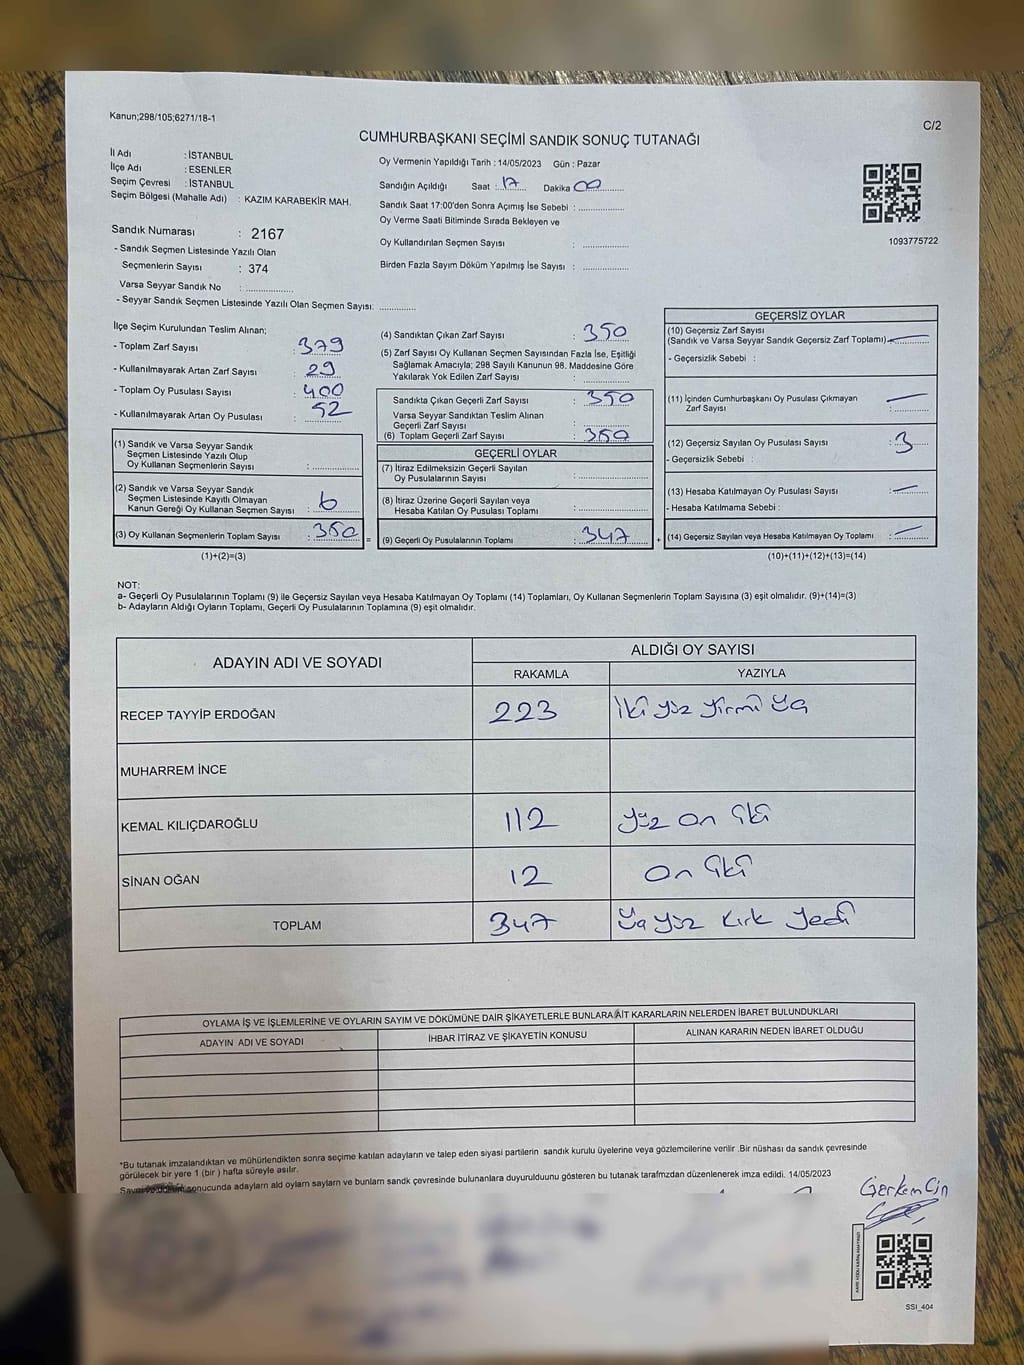 Kanun;298/105;6271/18-1
C/2
CUMHURBAŞKANI SEÇİMİ SANDIK SONUÇ TUTANAĞI
İl Adı : İSTANBUL
İlçe Adı : ESENLER
Seçim Çevresi : İSTANBUL
Seçim Bölgesi (Mahalle Adı) : KAZIM KARABEKİR MAH.
Sandık Numarası : 2167
- Sandık Seçmen Listesinde Yazılı Olan
Seçmenlerin Sayısı : 374
Varsa Seyyar Sandık No : ..................
- Seyyar Sandık Seçmen Listesinde Yazılı Olan Seçmen Sayısı: ..............
Oy Vermenin Yapıldığı Tarih : 14/05/2023 Gün : Pazar
Sandığın Açıldığı Saat : 17 Dakika 00
Sandık Saat 17:00'den Sonra Açımış İse Sebebi : .................
Oy Verme Saati Bitiminde Sırada Bekleyen ve
Oy Kullandırılan Seçmen Sayısı : .................
Birden Fazla Sayım Döküm Yapılmış İse Sayısı : .................
1093775722
İlçe Seçim Kurulundan Teslim Alınan;
- Toplam Zarf Sayısı : 379
- Kullanılmayarak Artan Zarf Sayısı : 29
- Toplam Oy Pusulası Sayısı : 400
- Kullanılmayarak Artan Oy Pusulası : 52
(1) Sandık ve Varsa Seyyar Sandık
Seçmen Listesinde Yazılı Olup
Oy Kullanan Seçmenlerin Sayısı : .................
(2) Sandık ve Varsa Seyyar Sandık
Seçmen Listesinde Kayıtlı Olmayan
Kanun Gereği Oy Kullanan Seçmen Sayısı : 6
(3) Oy Kullanan Seçmenlerin Toplam Sayısı : 350 =
(1)+(2)=(3)
(4) Sandıktan Çıkan Zarf Sayısı : 350
(5) Zarf Sayısı Oy Kullanan Seçmen Sayısından Fazla İse, Eşitliği
Sağlamak Amacıyla; 298 Sayılı Kanunun 98. Maddesine Göre
Yakılarak Yok Edilen Zarf Sayısı : .................
Sandıkta Çıkan Geçerli Zarf Sayısı : 350
Varsa Seyyar Sandıktan Teslim Alınan
Geçerli Zarf Sayısı : .................
(6) Toplam Geçerli Zarf Sayısı : 350
GEÇERLİ OYLAR
(7) İtiraz Edilmeksizin Geçerli Sayılan
Oy Pusulalarının Sayısı : .................
(8) İtiraz Üzerine Geçerli Sayılan veya
Hesaba Katılan Oy Pusulası Toplamı : .................
(9) Geçerli Oy Pusulalarının Toplamı : 347 +
GEÇERSİZ OYLAR
(10) Geçersiz Zarf Sayısı
(Sandık ve Varsa Seyyar Sandık Geçersiz Zarf Toplamı) —
- Geçersizlik Sebebi :
(11) İçinden Cumhurbaşkanı Oy Pusulası Çıkmayan
Zarf Sayısı : —
(12) Geçersiz Sayılan Oy Pusulası Sayısı : 3
- Geçersizlik Sebebi :
(13) Hesaba Katılmayan Oy Pusulası Sayısı : —
- Hesaba Katılmama Sebebi :
(14) Geçersiz Sayılan veya Hesaba Katılmayan Oy Toplamı : —
(10)+(11)+(12)+(13)=(14)
NOT:
a- Geçerli Oy Pusulalarının Toplamı (9) ile Geçersiz Sayılan veya Hesaba Katılmayan Oy Toplamı (14) Toplamları, Oy Kullanan Seçmenlerin Toplam Sayısına (3) eşit olmalıdır. (9)+(14)=(3)
b- Adayların Aldığı Oyların Toplamı, Geçerli Oy Pusulalarının Toplamına (9) eşit olmalıdır.
ADAYIN ADI VE SOYADI ALDIĞI OY SAYISI
RAKAMLA YAZIYLA
RECEP TAYYİP ERDOĞAN 223 İki yüz yirmi üç
MUHARREM İNCE
KEMAL KILIÇDAROĞLU 112 Yüz on iki
SİNAN OĞAN 12 on iki
TOPLAM 347 Üç yüz kırk yedi
OYLAMA İŞ VE İŞLEMLERİNE VE OYLARIN SAYIM VE DÖKÜMÜNE DAİR ŞİKAYETLERLE BUNLARA AİT KARARLARIN NELERDEN İBARET BULUNDUKLARI
ADAYIN ADI VE SOYADI İHBAR İTİRAZ VE ŞİKAYETİN KONUSU ALINAN KARARIN NEDEN İBARET OLDUĞU
*Bu tutanak imzalandıktan ve mühürlendikten sonra seçime katılan adayların ve talep eden siyasi partilerin sandık kurulu üyelerine veya gözlemcilerine verilir .Bir nüshası da sandık çevresinde
görülecek bir yere 1 (bir ) hafta süreyle asılır.
sonucunda adayların ald oyların sayları ve bunların sandk çevresinde bulunanlara duyurulduunu gösteren bu tutanak tarafmzdan düzenlenerek imza edildi. 14/05/2023
SSI_404